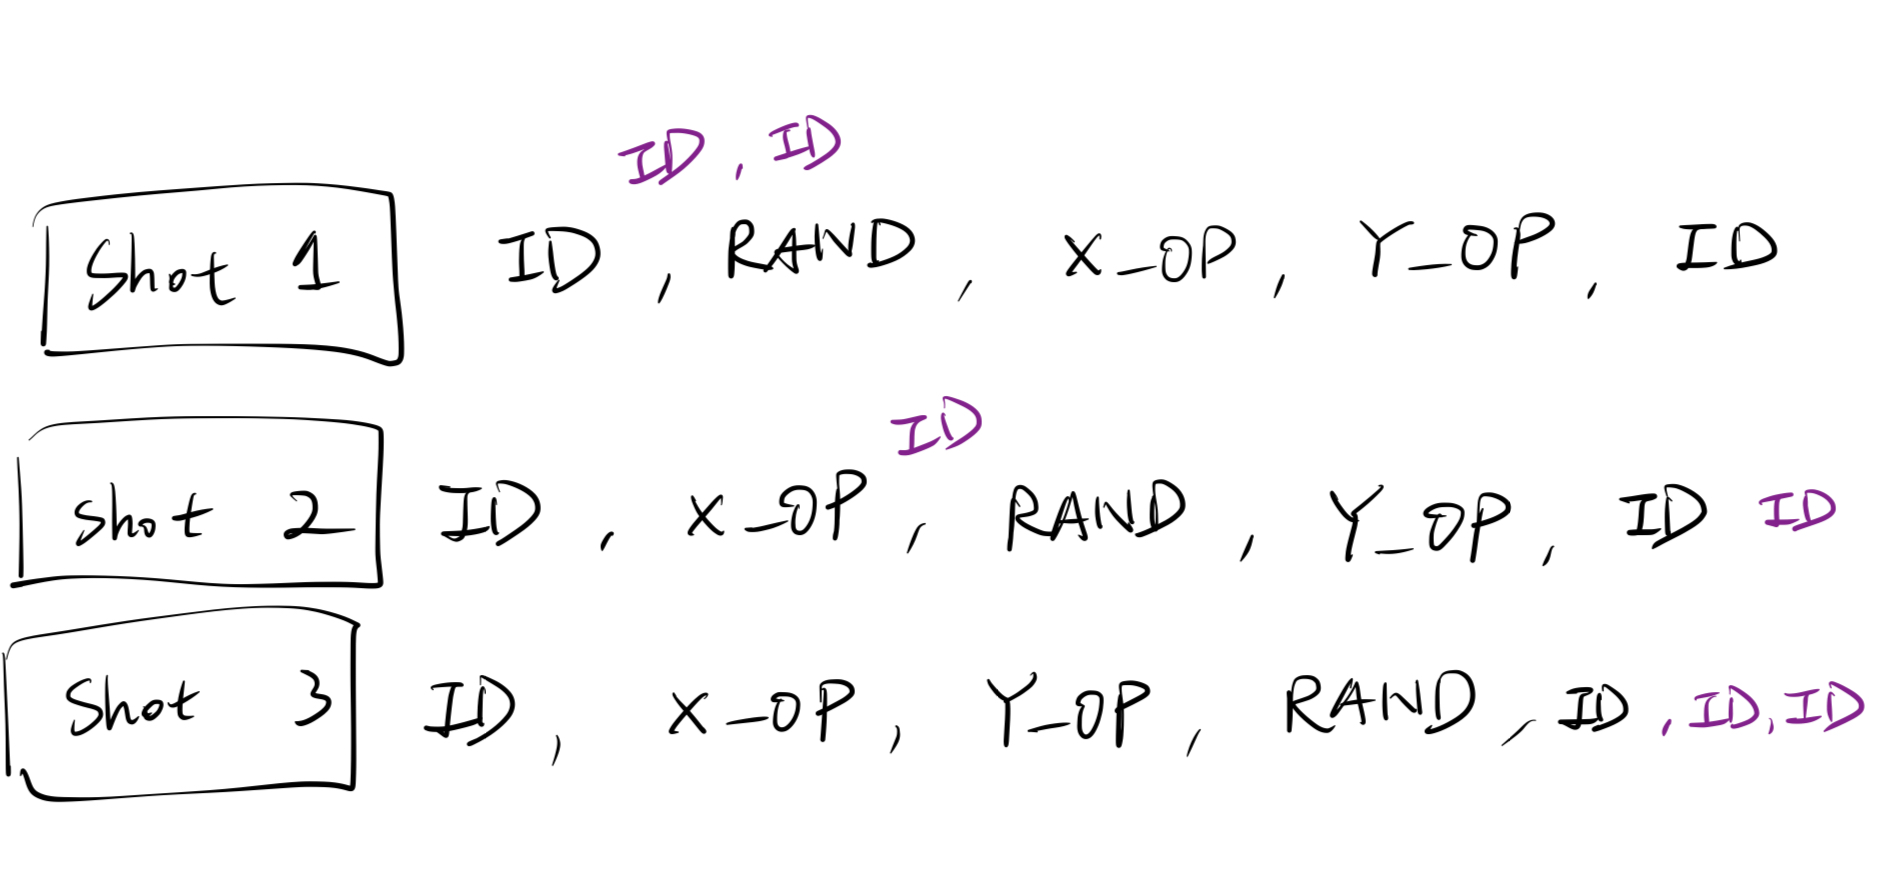 ID, ID
Shot 1 ID, RAND, X_OP, Y_OP, ID
ID
Shot 2 ID, X_OP, RAND, Y_OP, ID ID
Shot 3 ID, X_OP, Y_OP, RAND, ID, ID, ID